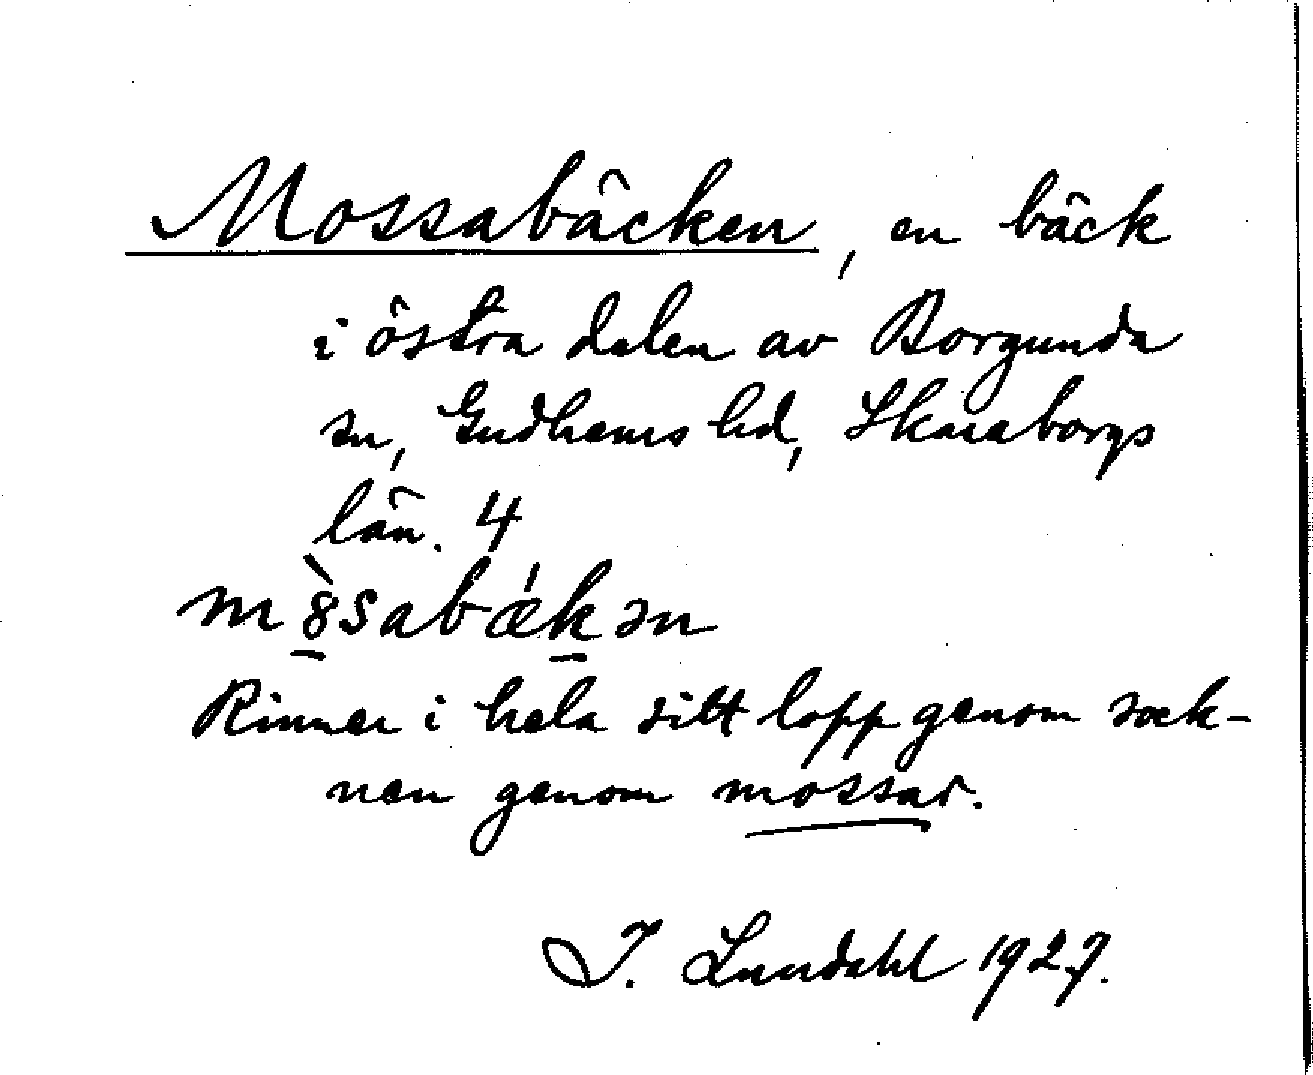 Mossabäcken, en bäck
i östra dalen av Borgunda
sn, Gudhems hd, Skaraborgs
län. 4
m8̀sabǽkən
Rinner i hela sitt lopp genom sock-
nen genom mossar.
I. Lundahl 1927.